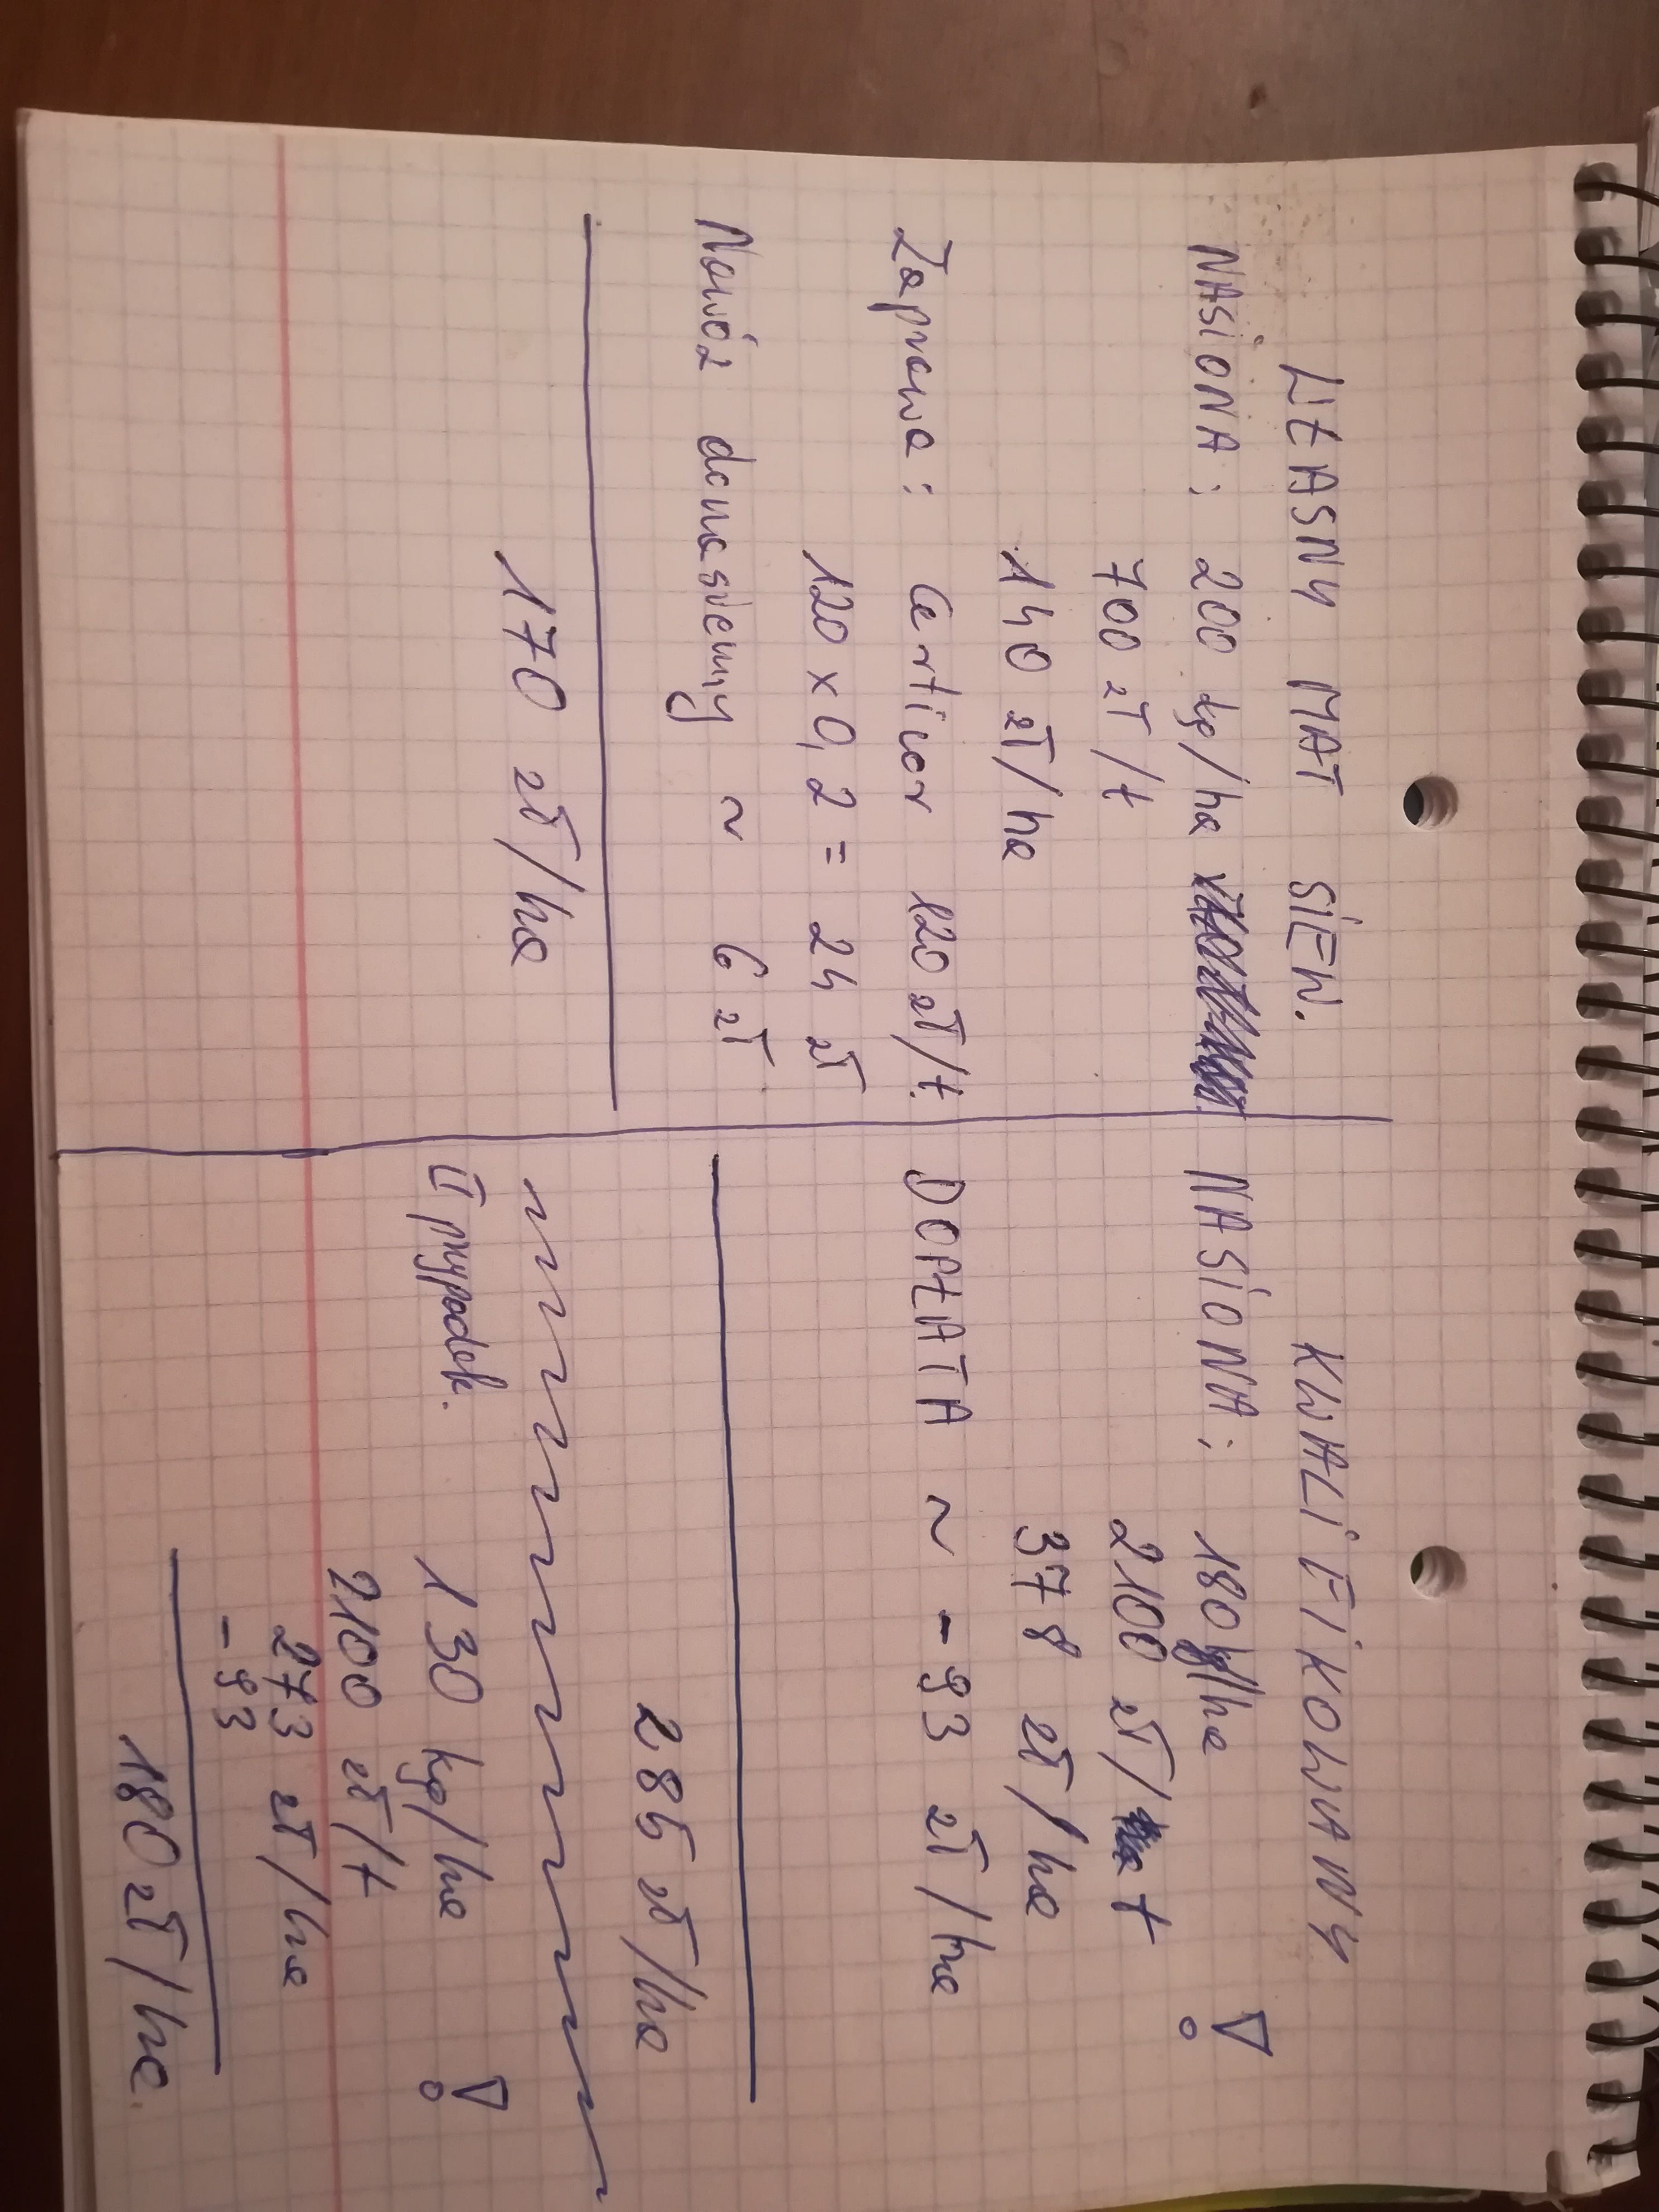 WŁASNY MAT SIEW.
NASIONA: 200 kg/ha
700 zł/t
140 zł/ha
Zaprawa: Certicor 120 zł/t.
120 x 0,2 = 24 zł
Nawóz donasienny ~ 6 zł
170 zł/ha
KWALIFIKOWANY
NASIONA: 180 kg/ha !
2100 zł/t
378 zł/ha
DOPŁATA ~ -93 zł/ha
285 zł/ha
II przypadek. 130 kg/ha !
2100 zł/t
273 zł/ha
-93
180 zł/ha.